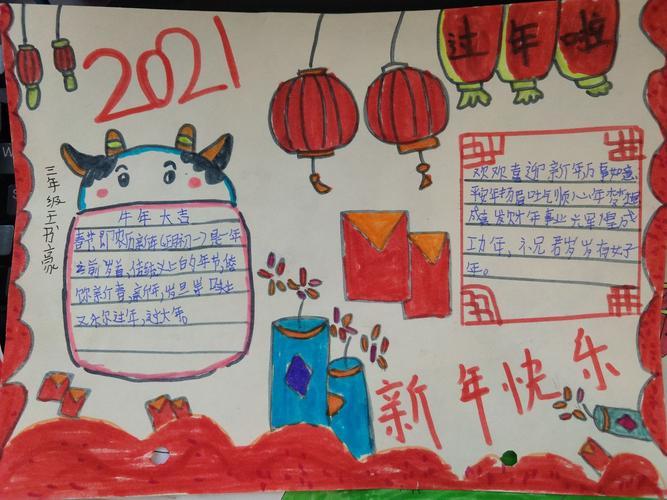 2021
过年啦
三年级王书豪
牛年大吉
春节即农历新年(正月初一)是一年
之前岁首,传统义上的年节,俗
称新春,新年,岁旦岁 口头上
又乐尔过年,过大年。
欢欢喜迎新年万事如意
平安年扬眉吐气顺心年梦想
成真发财年事业光辉煌成
功年,祝君岁岁有好
年。
新年快乐